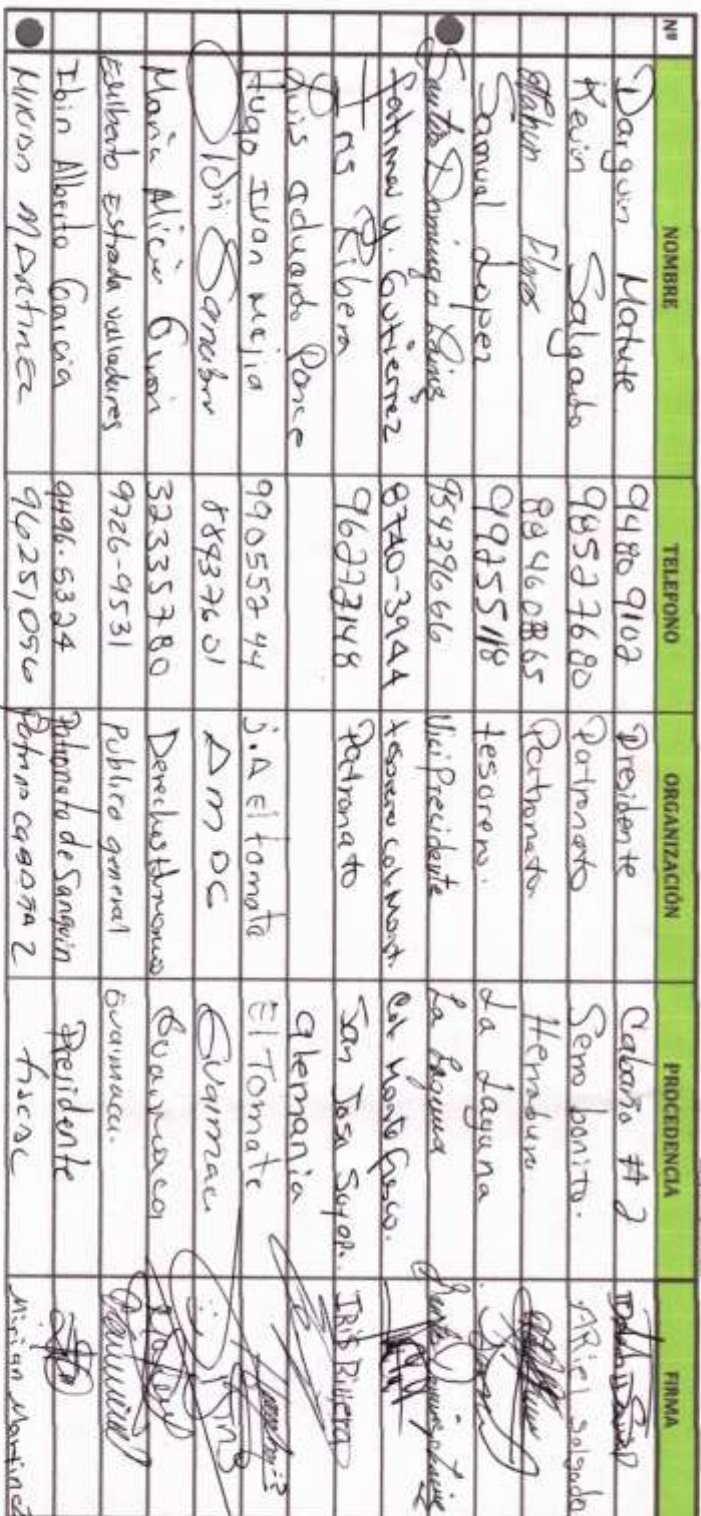 Nº NOMBRE TELEFONO ORGANIZACIÓN PROCEDENCIA FIRMA
Darguin Matute 9480 9102 Presidente Cabaña # 2
Kevin Salgado 98527680 Patronato Serro bonito. ARiel Salgado
Flores Patronato
Samuel Lopez 99255118 tesorero. La Laguna
Santos Domingo 95439666 Vici Precidente La Laguna
y. Gutierrez 8740-3944 tesorero Col. Mont. Col. Monte fresco.
Iris Ribera 96272148 Patronato San Jose IRIS Rivera
Luis Eduardo Ponce alemania
Hugo Ivan Mejia 99055244 J.A El tomate El Tomate
88437601 AMDC Guaimaca
Maria Alicia Giron 32335780 Derechos Humanos Guaimaca
Edilberto Estrada valladares 9726-9531 Publico general Guaimaca.
Ibin Alberto Garcia 9496-5324 Patronato de Sanguin Presidente
Mirian Martinez 96251056 Patrono CABAÑA 2 fiscal Mirian Martinez